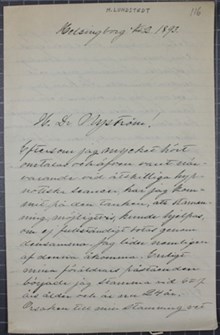 M. LUNDSTEDT
116
Helsingborg 1893.
H. Dr Nyström!
Eftersom jag mycket hört
omtalas och äfven varit när-
varande vid åtskilliga hyp-
notiska seancer har jag kom-
mit på den tanken, att stam-
ning, möjligtvis kunde hjelpas,
om ej fullständigt botas genom
densamma. Jag lider nemligen
af denna åkomma. Enligt
mina föräldrars påstående
började jag stamma vid 6 a 7
års ålder och är nu 24 år.
Orsaken till min stamning vet